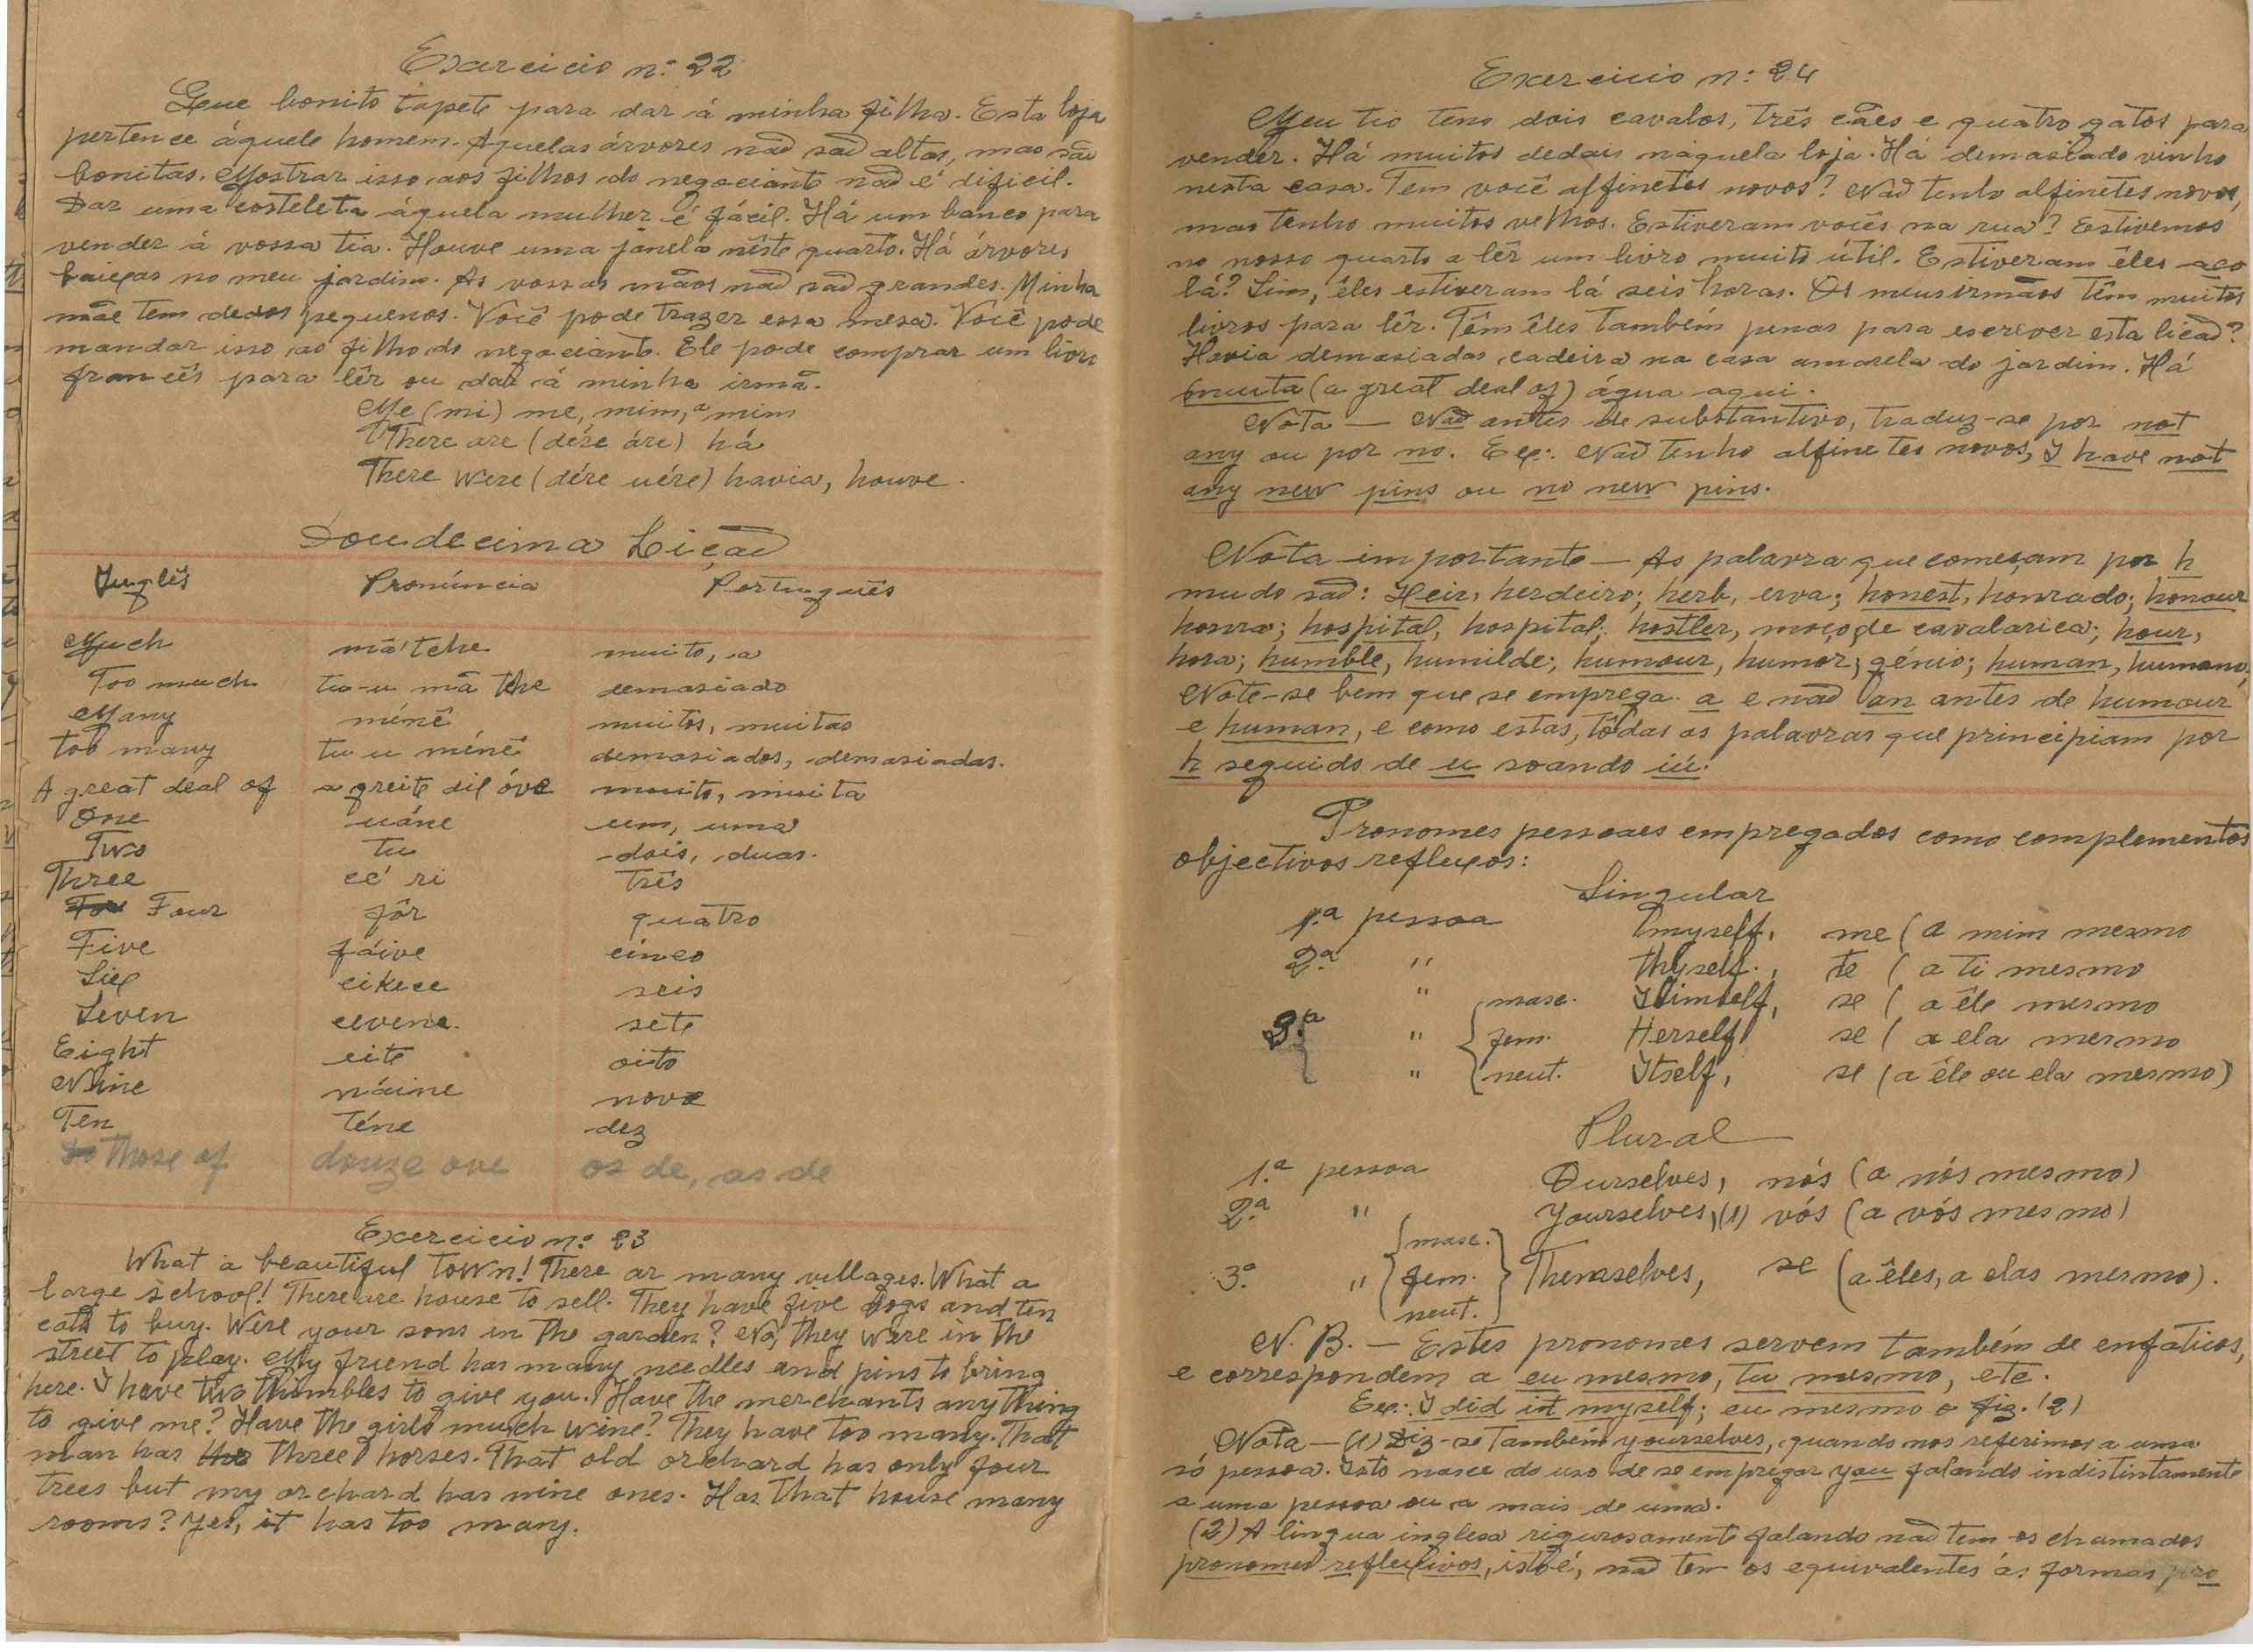 Exercicio n.º 22
Que bonito tapete para dar á minha filha. Esta loja
pertence áquele homem. Aquelas árvores não são altas, mas são
bonitas. Mostrar isso aos filhos do negociante não é dificil.
Dar uma costeleta áquela mulher é fácil. Há um banco para
vender á vossa tia. Houve uma janela nêste quarto. Há árvores
baixas no meu jardim. As vossas mãos não são grandes. Minha
mãe tem dedos pequenos. Você pode trazer essa mesa. Você pode
mandar isso ao filho do negociante. Ele pode comprar um livro
francês para lêr ou dar á minha irmã.
Me (mi) me, mim, a mim
There are (dére áre) há
There were (dére uére) havia, houve.
Doudecima Lição
Inglês Pronúncia Português
Much mà'tche muito, a
Too much tu-u mà tche demasiado
Many ménê muitos, muitas
too many tu u ménê demasiados, demasiadas.
A great deal of a greite dil óve muito, muita
One uáne um, uma
Two tu dois, duas.
Three cé' ri três
Four fôr quatro
Five fáive cinco
Six cikce seis
Seven cevene. sete
Eight eite oito
Nine náine nove
Ten téne dez
those of douze ove os de, as de
Exercicio n.º 23
What a beautiful town! There ar many villages. What a
large school! There are house to sell. They have five dogs and ten
cats to buy. Were your sons in the garden? No, they were in the
street to play. My friend has many needles and pins to bring
here. I have two thimbles to give you. Have the merchants anything
to give me? Have the girls much wine? They have too many. That
man has three horses. That old orchard has only four
trees but my orchard has nine ones. Has that house many
rooms? Yes, it has too many.
Exercicio n.º 24
Meu tio tem dois cavalos, três cães e quatro gatos para
vender. Há muitos dedais náquela loja. Há demasiado vinho
nesta casa. Tem você alfinetes novos? Não tenho alfinetes novos,
mas tenho muitos velhos. Estiveram vocês na rua? Estivemos
no nosso quarto a lêr um livro muito útil. Estiveram êles aco
lá? Sim, êles estiveram lá seis horas. Os meus irmãos têm muitos
livros para lêr. Têm êles também penas para escrever esta licão?
Havia demasiadas cadeira na casa amarela do jardim. Há
muita (a great deal of) água aqui.
Nota — Não antes de substantivo, traduz-se por not
any ou por no. Ex: Não tenho alfinetes novos, I have not
any new pins ou no new pins.
Nota importante — As palavra que começam por h
mudo são: Heir, herdeiro; herb, erva; honest, honrado; honour
honra; hospital, hospital; hostler, moço de cavalarica; hour,
hora; humble, humilde; humour, humor, génio; human, humano,
Note-se bem que se emprega a e não an antes de humour
e human, e como estas, tôdas as palavras que principiam por
h seguido de u soando iú.
Pronomes pessoaes empregados como complementos
objectivos reflexos:
Singular
1.ª pessoa Imyself, me (a mim mesmo
2.ª " thyself., te (a ti mesmo
" masc. Himself, se (a êle mesmo
3.ª " fem. Herself se (a ela mesmo
" neut. Itself, se (a êle ou ela mesmo)
Plural
1.ª pessoa Ourselves, nós (a nós mesmo)
2.ª " Yourselves, (1) vós (a vós mesmo)
masc.
3.ª " fem. Themselves, se (a êles, a elas mesmo).
neut.
N. B. — Estes pronomes servem também de enfaticos,
e correspondem a eu mesmo, tu mesmo, etc.
Ex: I did it myself; eu mesmo o fiz. (2)
Nota — (1) Diz-se também yourselves, quando nos referimos a uma
só pessoa. Isto nasce do uso de se empregar you falando indistintamente
a uma pessoa ou a mais de uma.
(2) A lingua inglesa rigurosamente falando não tem os chamados
pronomes reflexivos, isto é, não tem os equivalentes ás formas pro